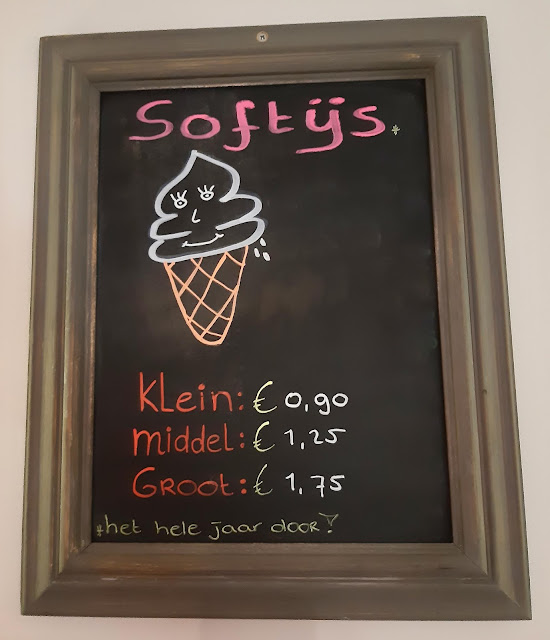 Softijs.*
Klein: € 0,90
middel: € 1,25
GROOT: € 1,75
*het hele jaar door!